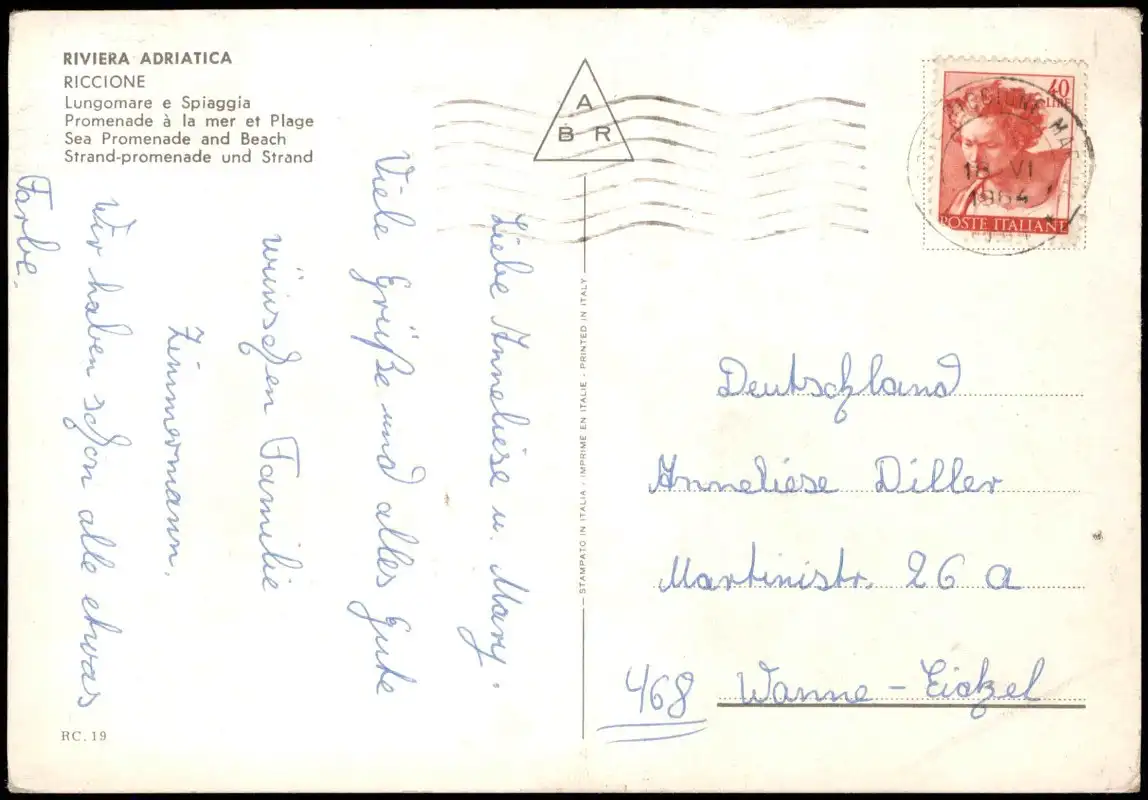 RIVIERA ADRIATICA
RICCIONE
Lungomare e Spiaggia
Promenade à la mer et Plage
Sea Promenade and Beach
Strand-promenade und Strand
A
B R
40
LIRE
RICCIONE MA
18 VI
1964
POSTE ITALIANE
Liebe Anneliese u. Mary.
Viele Grüße und alles Gute
wünschen Familie
Zimmermann.
Wir haben schon alle etwas
Farbe.
STAMPATO IN ITALIA - IMPRIME EN ITALIE - PRINTED IN ITALY
Deutschland
Anneliese Diller
Martinistr. 26 a
468 Wanne-Eickel
RC. 19